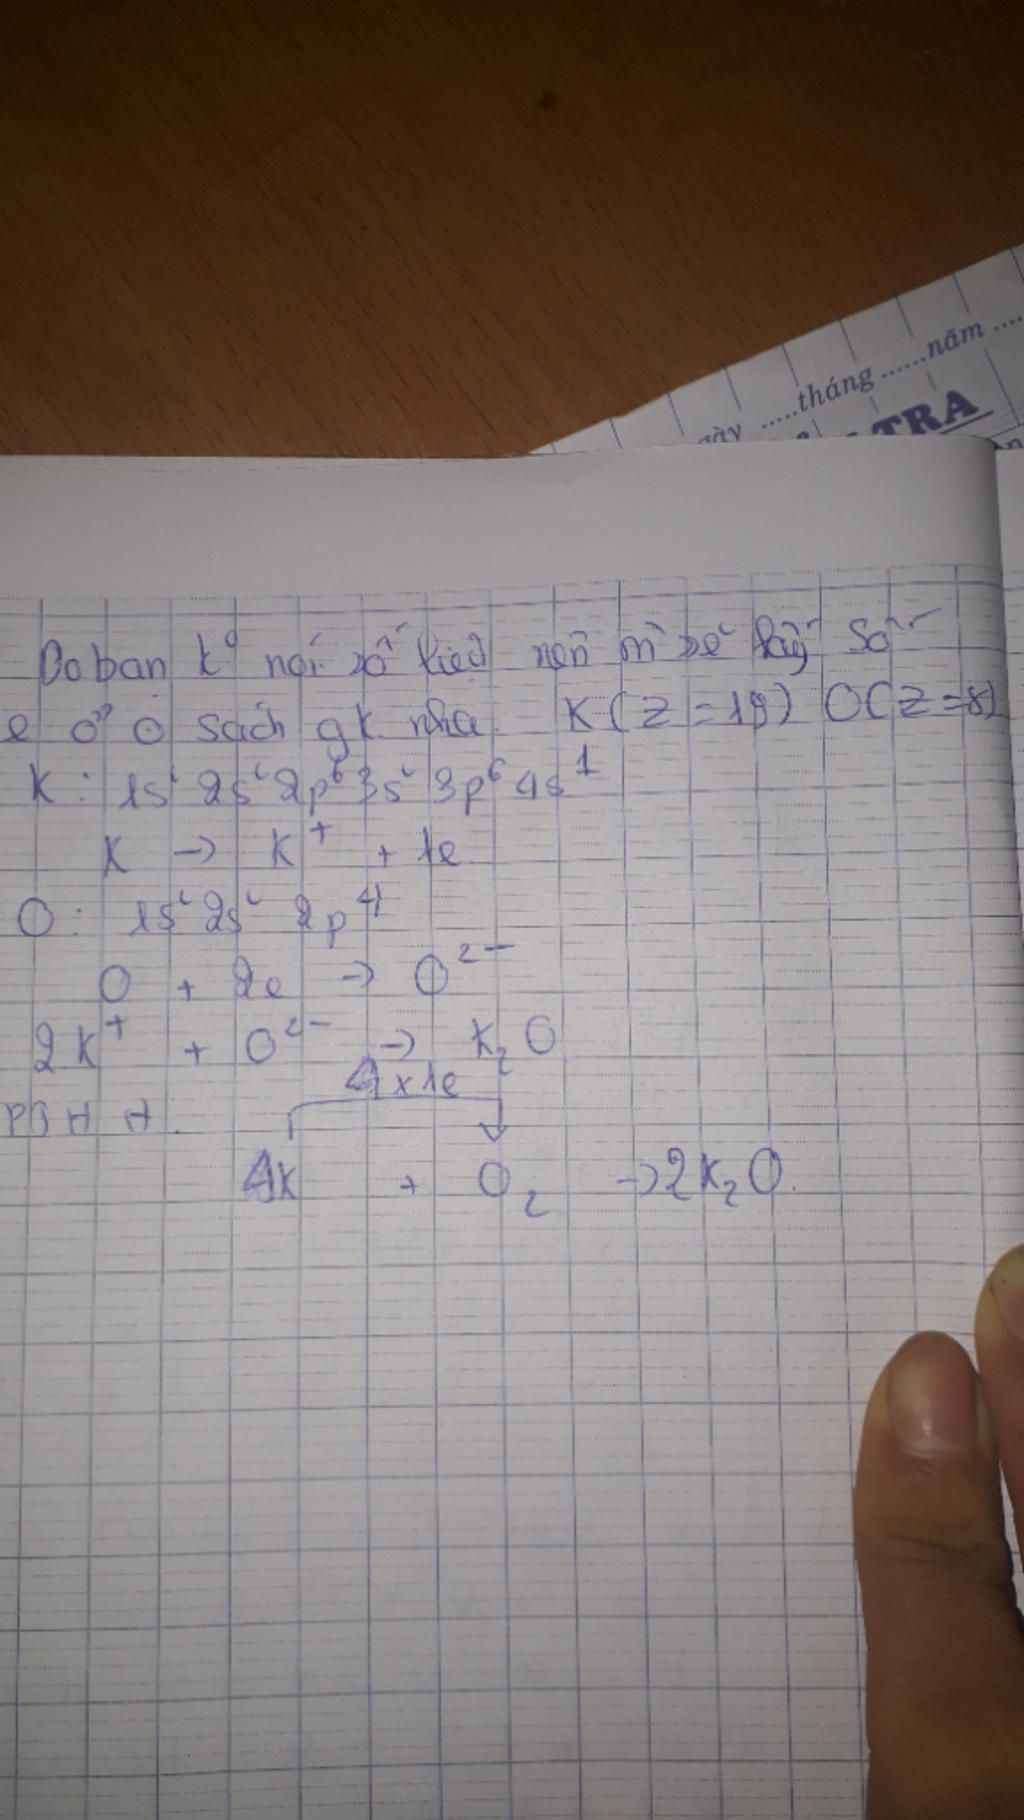 .....tháng ......năm ....
TRA
Do bạn k° nói số liệu nên m sẽ lấy số
e ở ô sách gk nha. K(Z=19) O(Z=8)
K: 1s² 2s² 2p⁶ 3s² 3p⁶ 4s¹
K → K⁺ + 1e
O: 1s² 2s² 2p⁴
O + 2e → O²⁻
2K⁺ + O²⁻ → K₂O
4x1e
PTHH
4K + O₂ → 2K₂O.